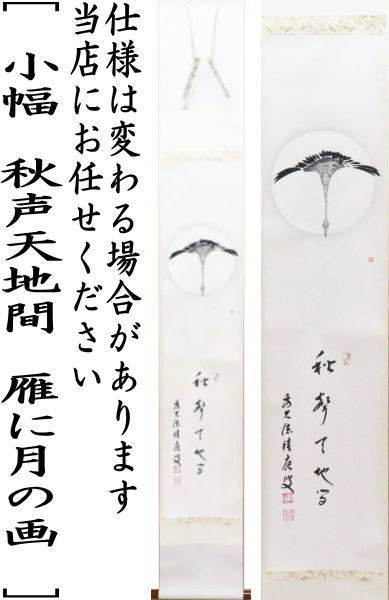 仕様は変わる場合があります
当店にお任せください
【 小幅 秋声天地間 雁に月の画 】
秋聲天地間
秋聲天地間